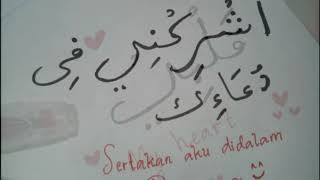 اشْرِكْنِي فِي
دُعَاءِكَ
heart
Sertakan aku didalam